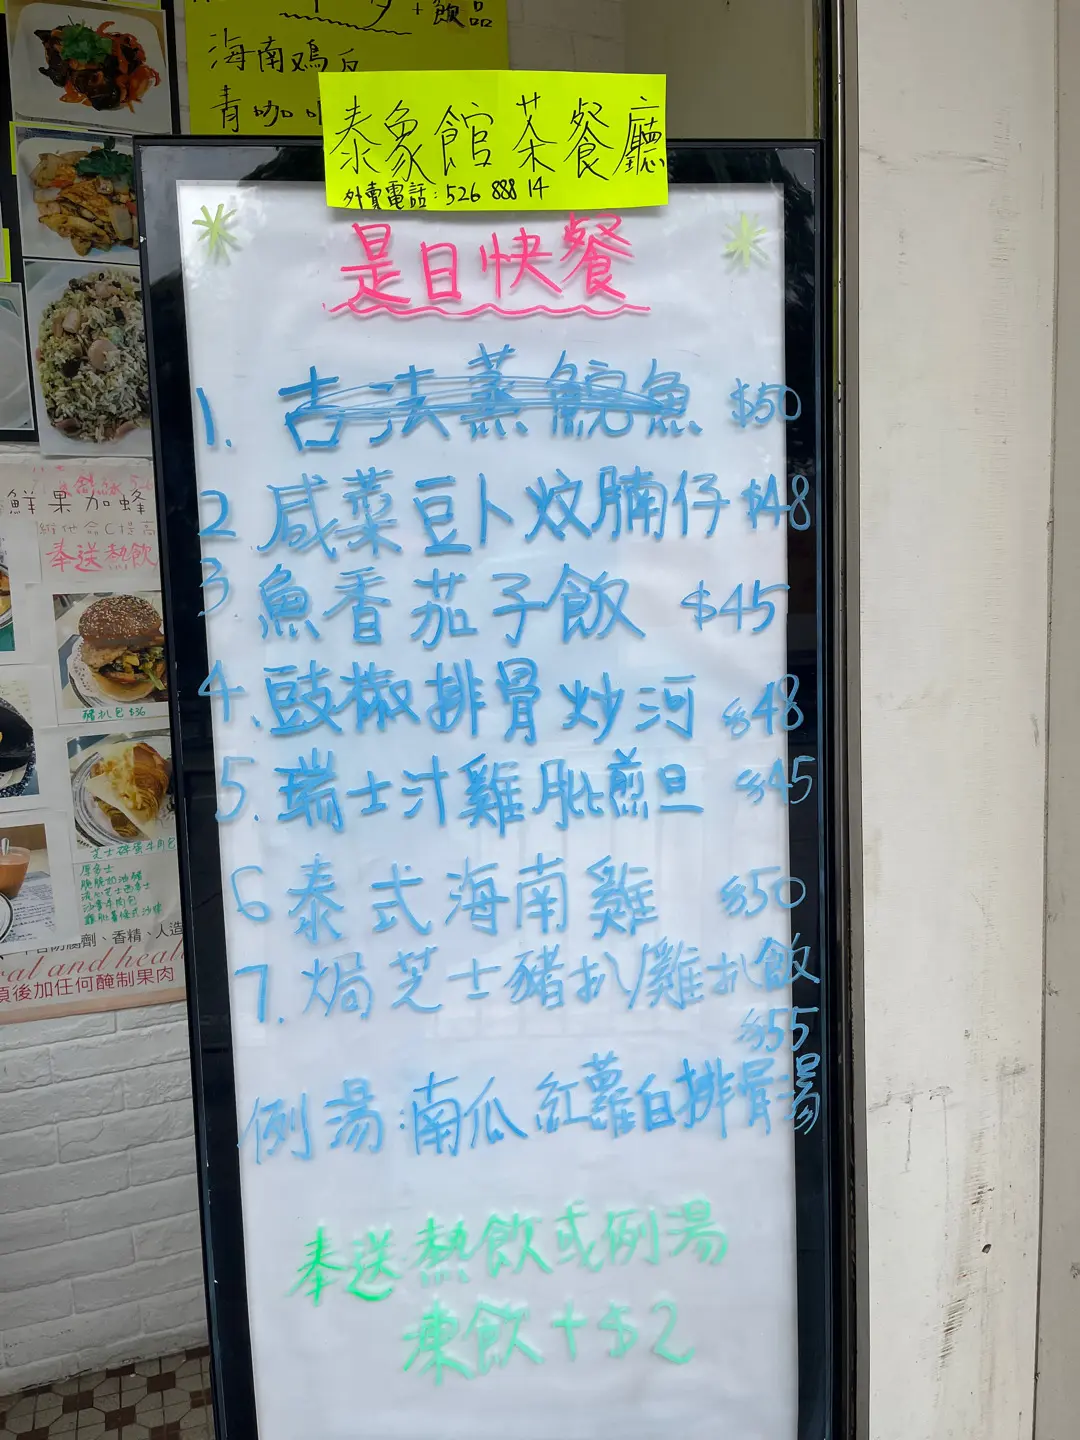 +飲品
海南鸡
青咖
泰象館茶餐廳
外賣電話:526 888 14
是日快餐
1. 古法蒸鯇魚 $50
2 咸菜豆卜炆腩仔 $48
3. 魚香茄子飯 $45
4. 豉椒排骨炒河 $48
5. 瑞士汁雞肶煎旦 $45
6 泰式海南雞 $50
7. 焗芝士豬扒/雞扒飯
$55
例湯:南瓜紅蘿白排骨湯
奉送熱飲或例湯
凍飲+$2
鮮果加蜂
維他命C提高
奉送熱飲
豬扒包 $36
沙嗲牛肉包
防腐劑、香精、人造
ral and heal
後加任何醃制果肉